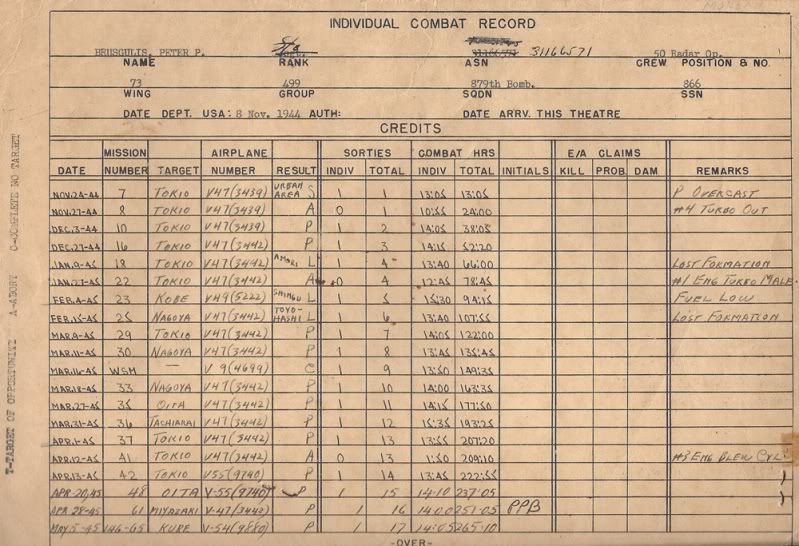 INDIVIDUAL COMBAT RECORD
BRUSGULIS, PETER P. S/Sgt. 31166571 50 Radar Op.
NAME RANK ASN CREW POSITION & NO.
73 499 879th Bomb. 866
WING GROUP SQDN SSN
DATE DEPT. USA: 8 Nov. 1944 AUTH: DATE ARRV. THIS THEATRE
CREDITS
MISSION AIRPLANE SORTIES COMBAT HRS E/A CLAIMS
DATE NUMBER TARGET NUMBER RESULT INDIV TOTAL INDIV TOTAL INITIALS KILL PROB. DAM REMARKS
NOV.24-44 7 TOKIO V47(3439) URBAN AREA S 1 1 13:05 13:05 P OVERCAST
NOV.27-44 8 TOKIO V47(3439) A 0 1 10:55 24:00 #4 TURBO OUT
DEC.3-44 10 TOKIO V47(3439) P 1 2 14:05 38:05
DEC.27-44 16 TOKIO V47(3442) P 1 3 14:15 52:20
JAN.9-45 18 TOKIO V47(3442) L 1 4 13:40 66:00 LOST FORMATION
JAN.27-45 22 TOKIO V47(3442) A 0 4 12:45 78:45 #1 ENG TURBO MALF.
FEB.4-45 23 KOBE V49(5222) SHINGU L 1 5 15:30 94:15 FUEL LOW
FEB.15-45 25 NAGOYA V47(3442) TOYO-HASHI L 1 6 13:40 107:55 LOST FORMATION
MAR.9-45 29 TOKIO V47(3442) P 1 7 14:05 122:00
MAR.11-45 30 NAGOYA V47(3442) P 1 8 13:45 135:45
MAR.16-45 WSM — V 9(4699) C 1 9 13:50 149:35
MAR.18-45 33 NAGOYA V47(3442) P 1 10 14:00 163:35
MAR.27-45 35 OITA V47(3442) P 1 11 14:15 177:50
MAR.31-45 36 TACHIARAI V47(3442) P 1 12 15:35 193:25
APR.1-45 37 TOKIO V47(3442) P 1 13 13:55 207:20
APR.12-45 41 TOKIO V47(3442) A 0 13 1:50 209:10 #3 ENG BLEW CYL.
APR.13-45 42 TOKIO V55(9740) P 1 14 13:45 222:55
APR-20,45 48 OITA V-55(9740) P 1 15 14:10 237:05
APR 28-45 61 MIYAZAKI V-47(3442) P 1 16 14:00 251:05 PPB
MAY 5-45 146-65 KURE V-54(9880) P 1 17 14:05 265:10
-OVER-
T-TARGET OF OPPORTUNITY A-ABORT C-COMPLETE NO TARGET